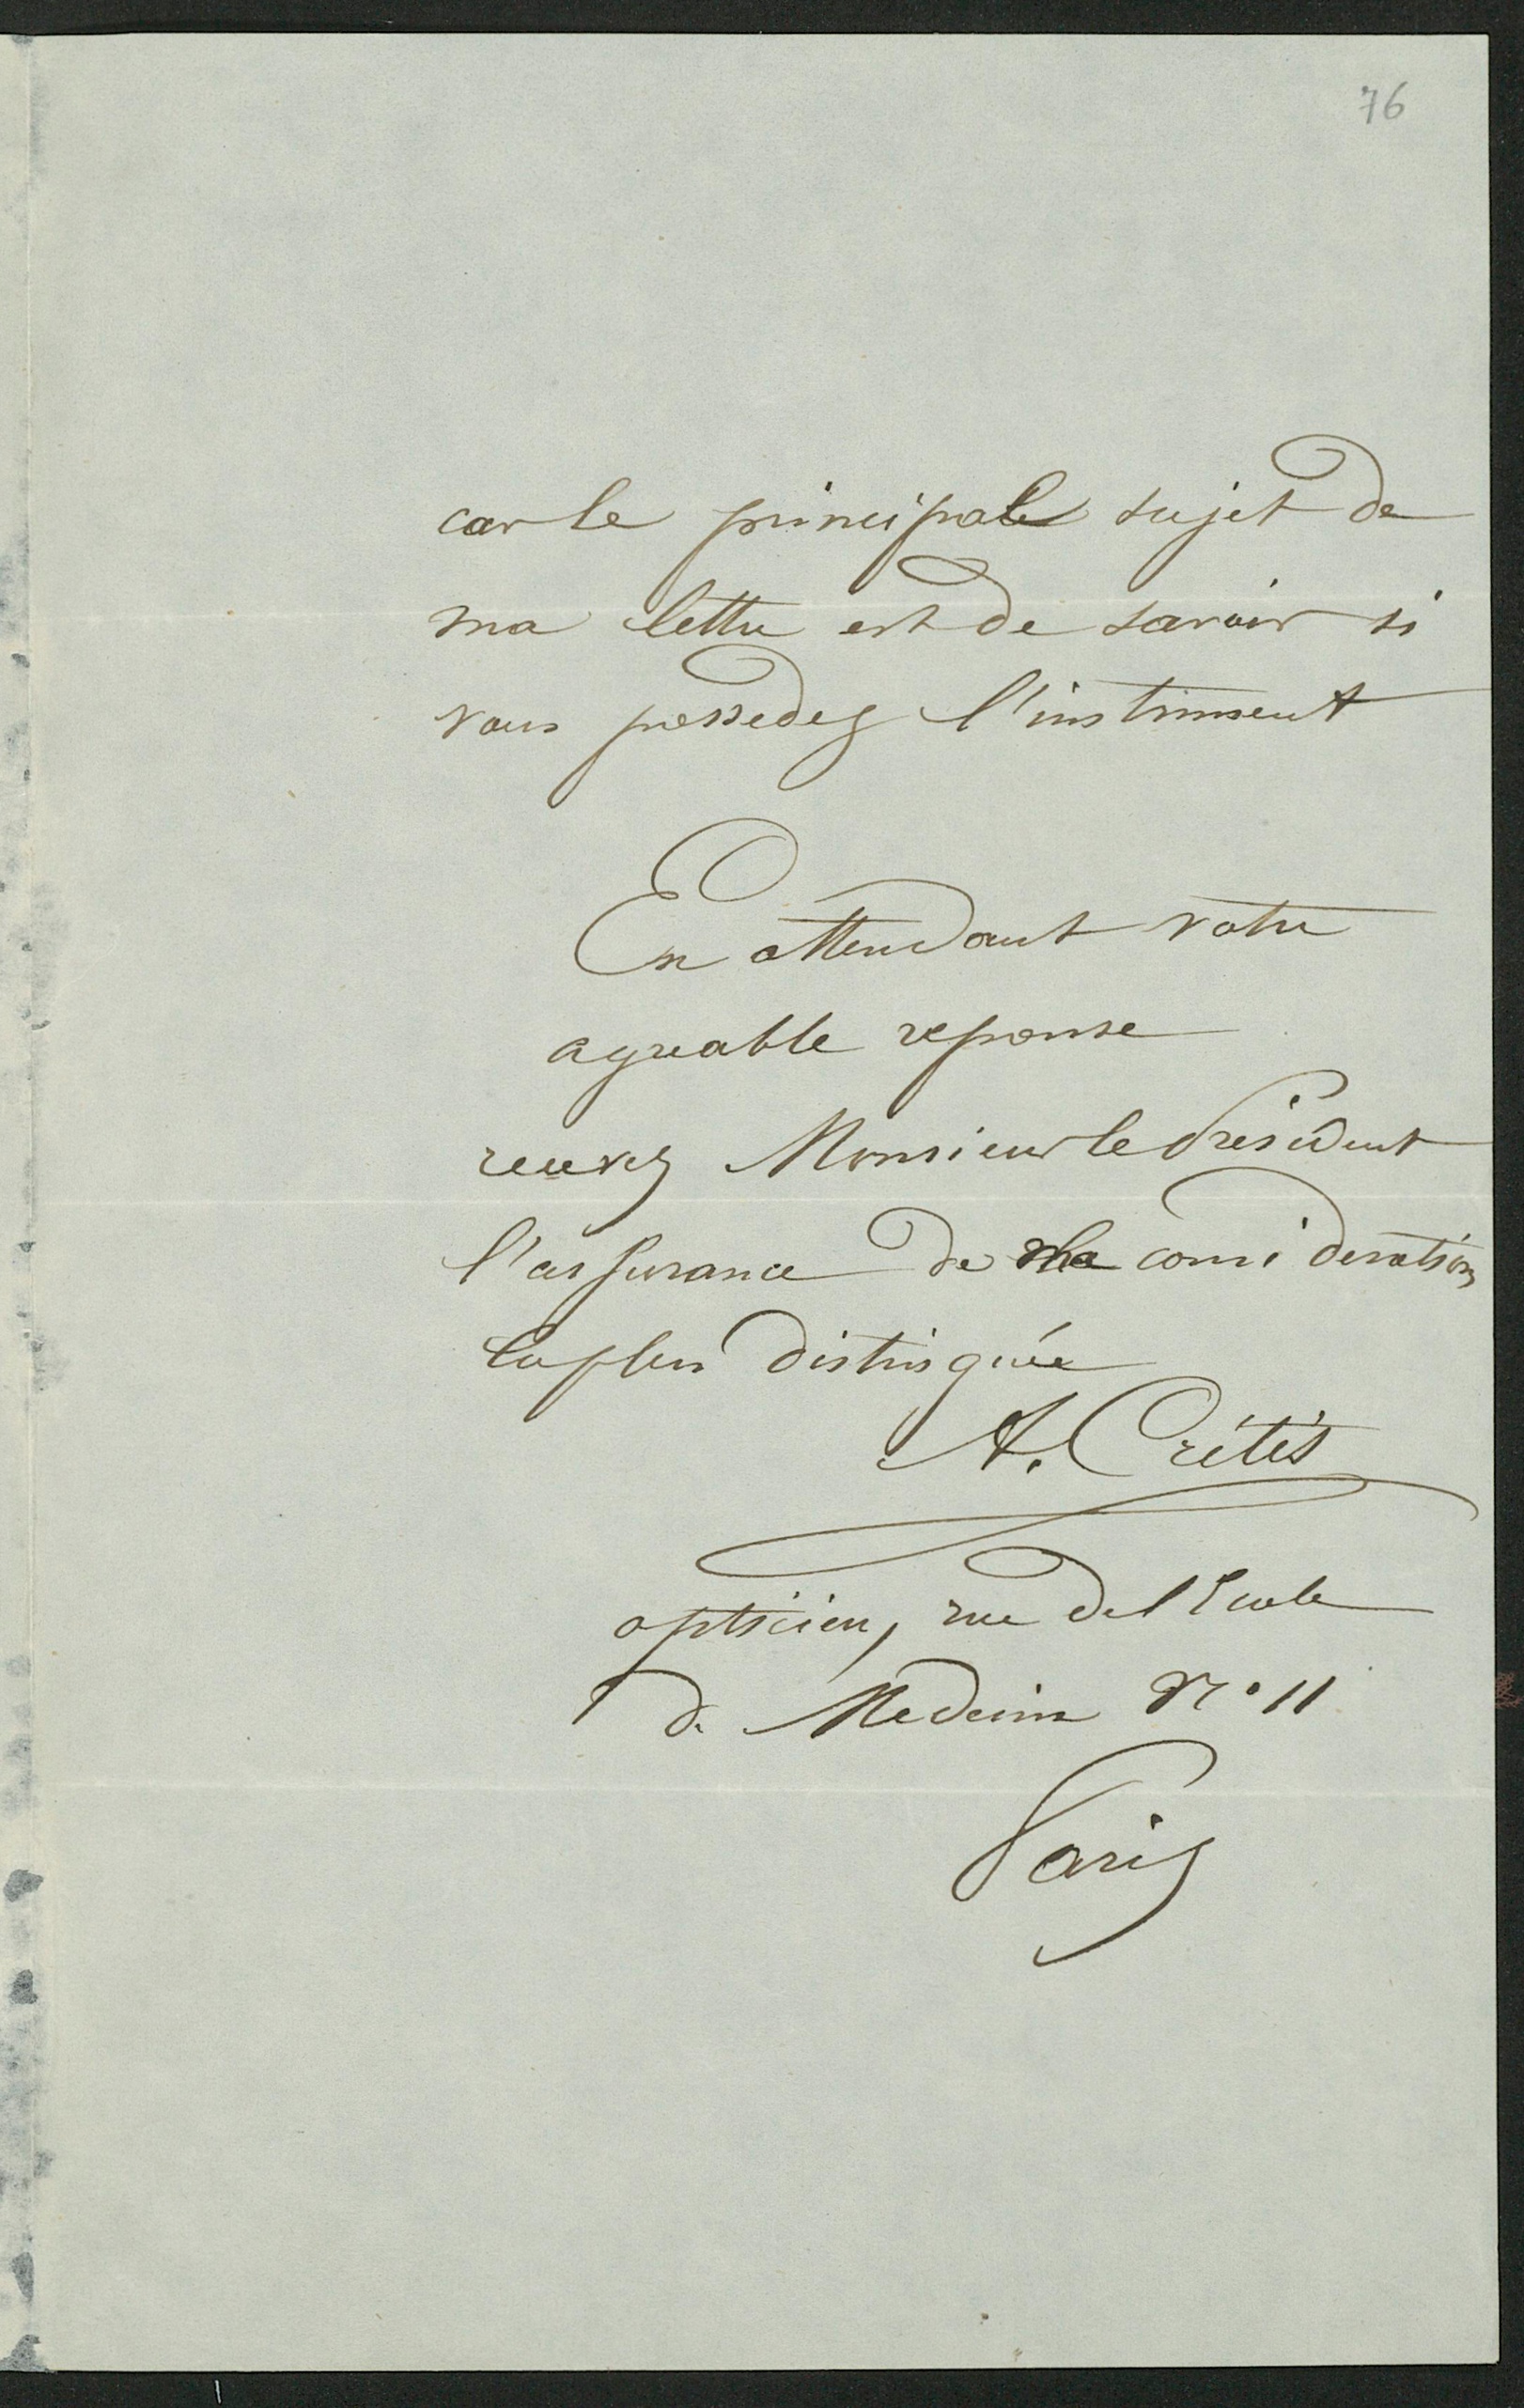 76
car le principale sujet de
ma lettre est de savoir si
vous possedez l'instrument
En attendant votre
agreable reponse
recevez Monsieur le President
l'assurance de ma consideration
la plus distinguée
A. Crétès
opticien, rue de l'Ecole
de Medecine N° 11
Paris